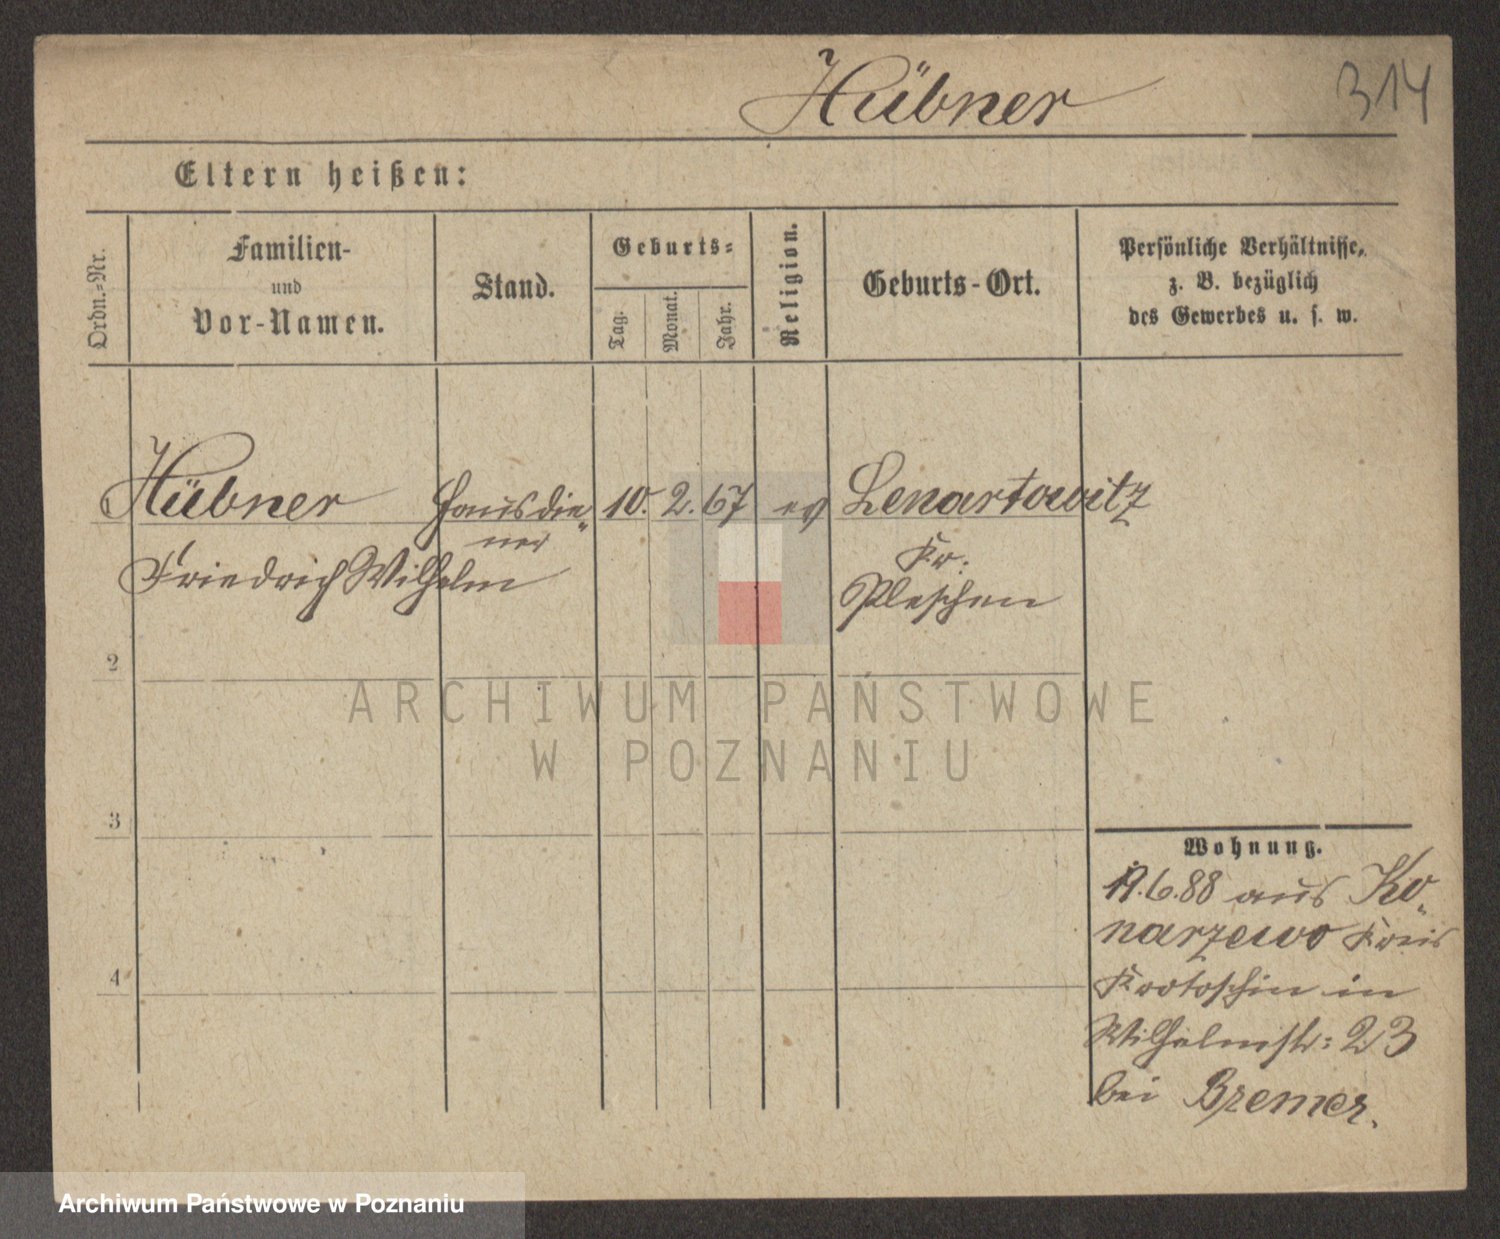 Hübner
314
Eltern heißen:
Ordn.-Nr.
Familien-
und
Vor-Namen.
Stand.
Geburts-
Tag.
Monat.
Jahr.
Religion.
Geburts-Ort.
Persönliche Verhältnisse,
z. B. bezüglich
des Gewerbes u. s. w.
Hübner Hausdie- 10. 2. 67 ev Lenartowitz
ner
Friedrich Wilhelm
Kr:
Pleschen
2
ARCHIWUM PAŃSTWOWE
W POZNANIU
3
Wohnung.
19.6.88 aus Ko-
narzewo Kreis
4
Krotoschin in
Wilhelmstr: 23
bei Bremer.
Archiwum Państwowe w Poznaniu